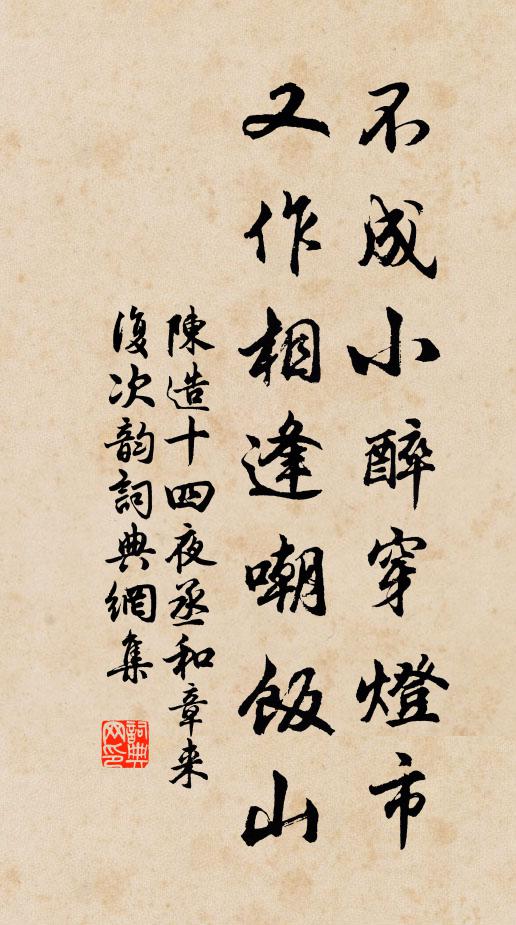 不成小醉穿燈市
又作相逢嘲飯山
陳造十四夜丞和章来
復次韵詞典網集
詞典网印